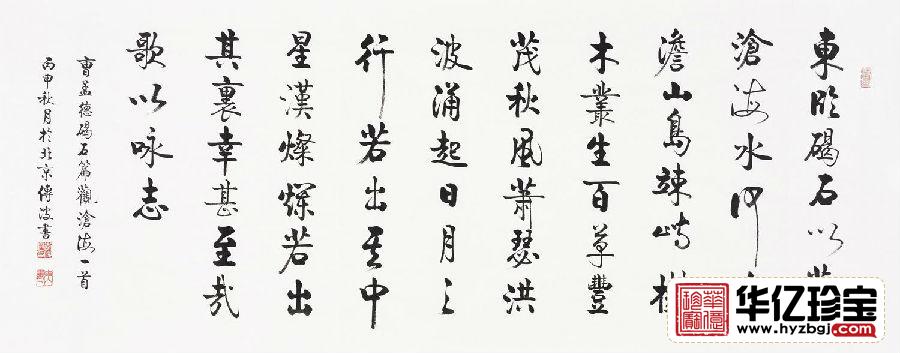 東临碣石以
滄海水何
澹山島竦峙樹
木叢生百草豐
茂秋風蕭瑟洪
波涌起日月之
行若出其中
星漢燦爛若出
其裏幸甚至哉
歌以咏志
曹孟德碣石篇觀滄海一首
丙申秋月於北京傅波書
華億珍寶
华亿珍宝
www.hyzbgj.com